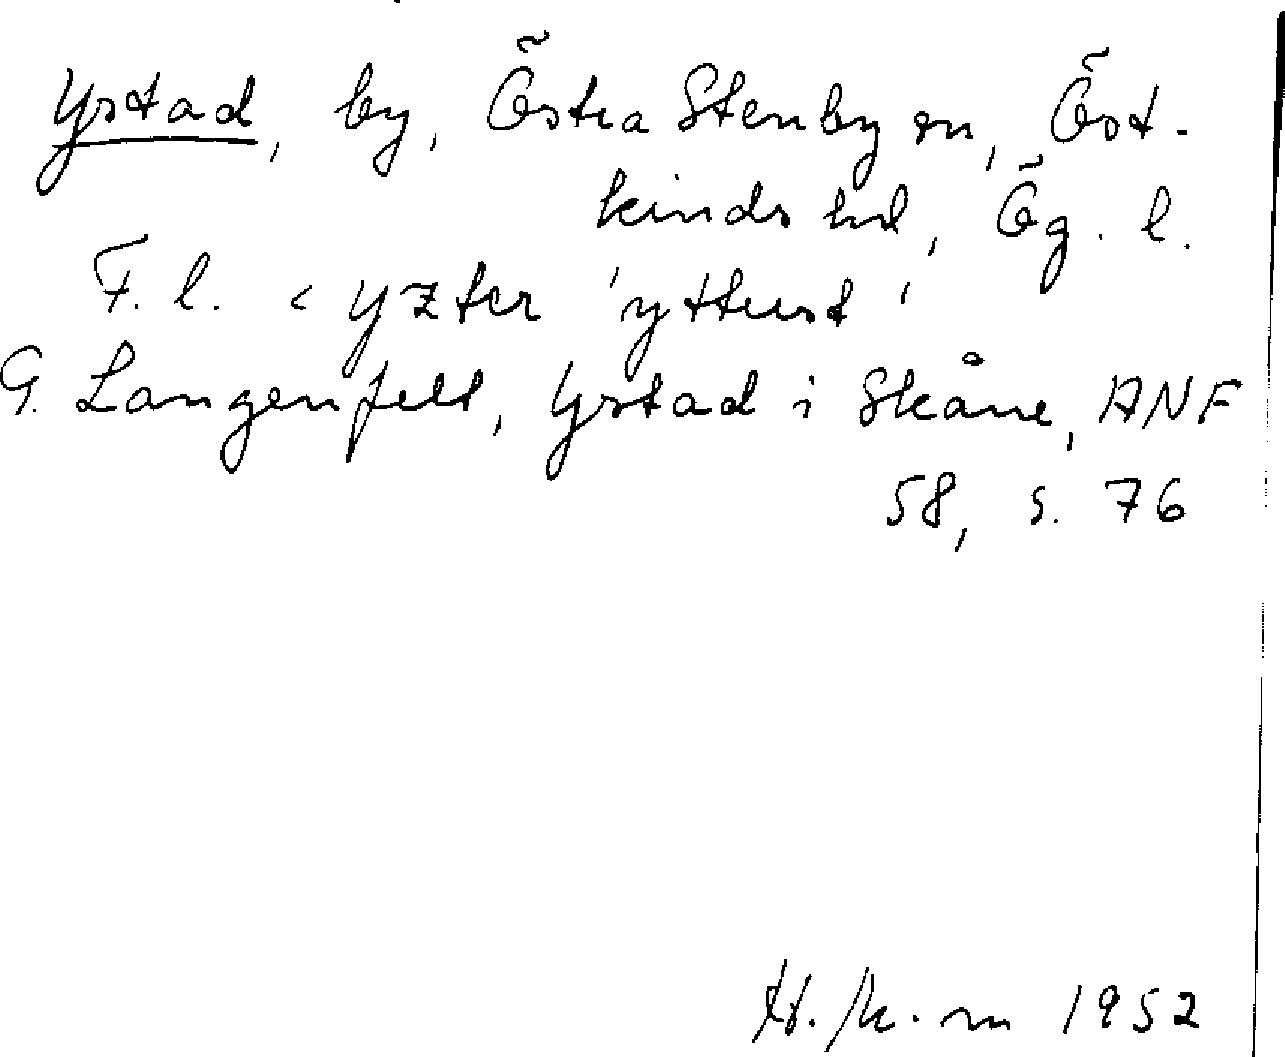 Ystad, by, Östra Stenby sn, Öst-
kinds hd, Ög. l.
F. l. < yzter 'ytterst'
G. Langenfelt, Ystad i Skåne, ANF
58, s. 76
1952